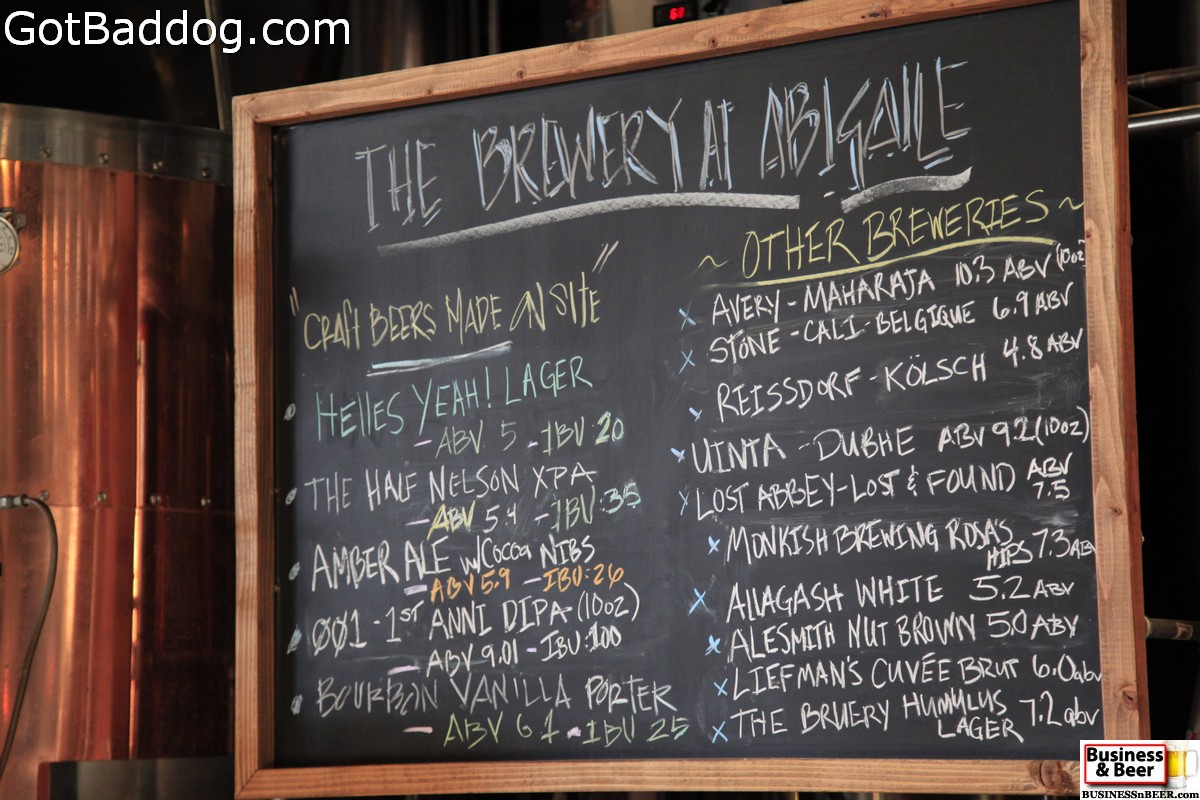 GotBaddog.com
63
THE BREWERY AT ABIGAILE
"CRAFT BEERS MADE ON SITE"
HELLES YEAH! LAGER
- ABV 5 - IBV:20
THE HALF NELSON XPA
- ABV 5.4 - IBV:35
AMBER ALE W/COCOA NIBS
- ABV 5.9 - IBU:26
001 - 1ST ANNI DIPA (10oz)
- ABV 9.01 - IBU:100
BOURBON VANILLA PORTER
- ABV 6.1 - IBU 25
~ OTHER BREWERIES ~
x AVERY - MAHARAJA 10.3 ABV (10oz
x STONE - CALI-BELGIQUE 6.9 ABV
x REISSDORF - KÖLSCH 4.8 ABV
x UINTA - DUBHE ABV 9.2 (10oz)
x LOST ABBEY - LOST & FOUND ABV 7.5
x MONKISH BREWING ROSA'S HIPS 7.3 ABV
x ALLAGASH WHITE 5.2 ABV
x ALESMITH NUT BROWN 5.0 ABV
x LIEFMAN'S CUVÉE BRUT 6.0 abv
x THE BRUERY HUMULUS LAGER 7.2 abv
Business & Beer
BUSINESSnBEER.com